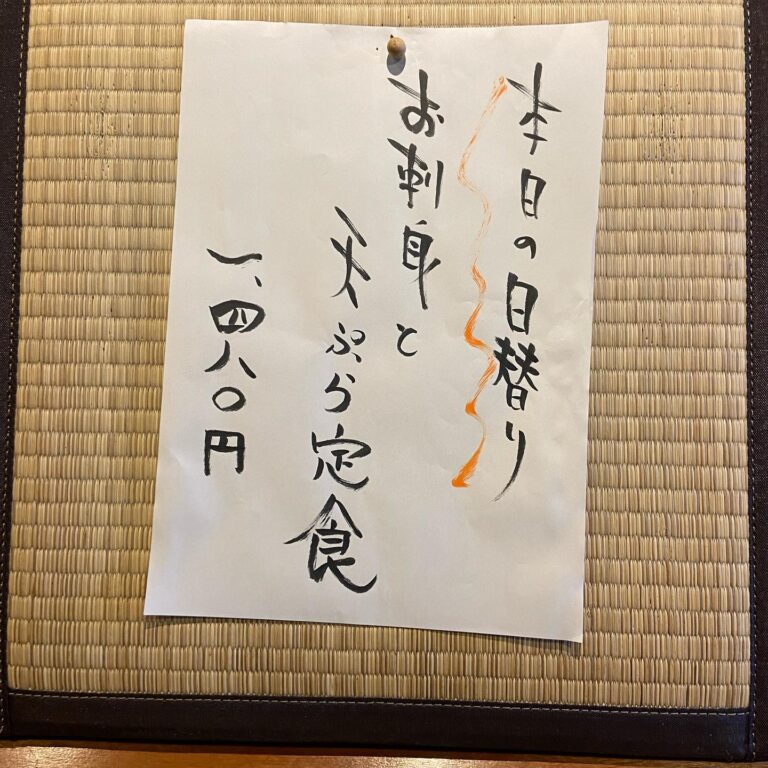 本日の日替り
お刺身と
天ぷら定食
一、四八〇円